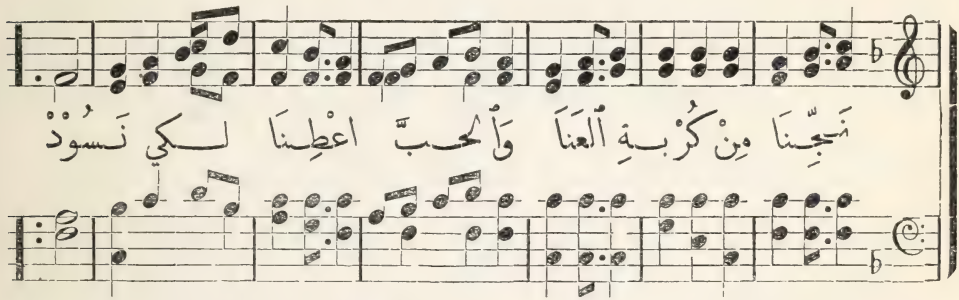 نَجِّنا مِنْ كُرْبةِ ٱلعَنَا وَٱلحبَّ اعْطِنا لكي نَسُوْدْ